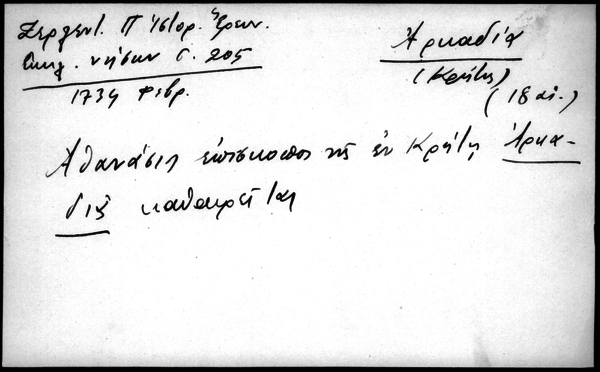 Ζερλεντ. Π Ἱστορ. Ἔρευν.
Ἐκκλ. νήσων σ. 205
1734 Φεβρ.
Ἀρκαδία
(Κρήτης)
(18 αἰ.)
Ἀθανάσιος ἐπίσκοπος τῆς ἐν Κρήτῃ Ἀρκα-
δίας καθαιρεῖται